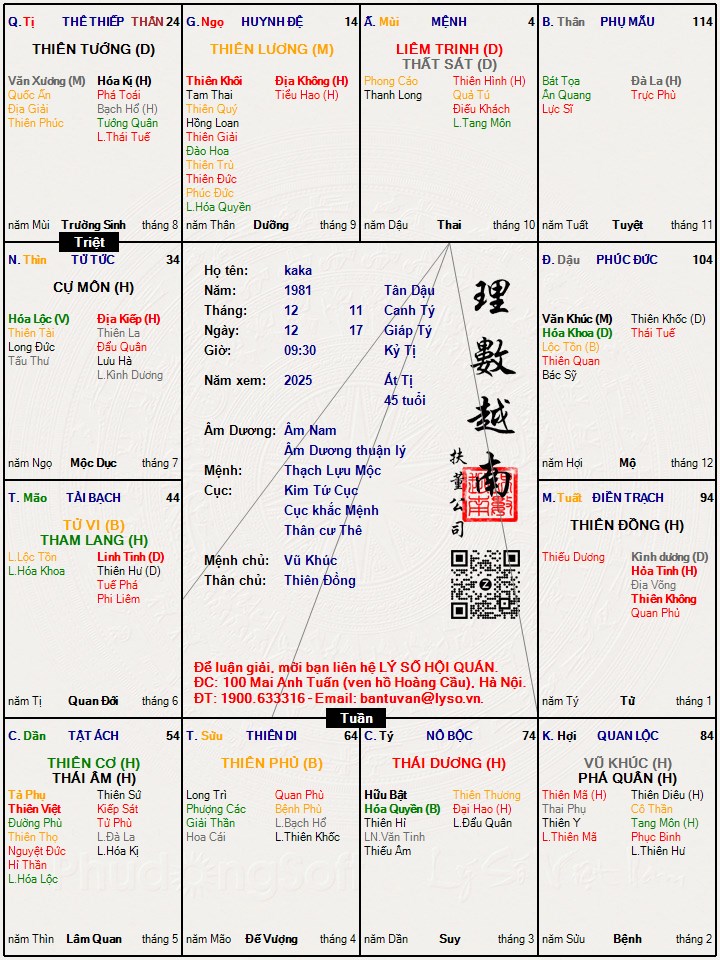 Q. Tị THÊ THIẾP THÂN 24
THIÊN TƯỚNG (D)
Văn Xương (M) Hóa Kị (H)
Quốc Ấn Phá Toái
Địa Giải Bạch Hổ (H)
Thiên Phúc Tướng Quân
L.Thái Tuế
năm Mùi Trường Sinh tháng 8
G. Ngọ HUYNH ĐỆ 14
THIÊN LƯƠNG (M)
Thiên Khôi Địa Không (H)
Tam Thai Tiểu Hao (H)
Thiên Quý
Hồng Loan
Thiên Giải
Đào Hoa
Thiên Trù
Thiên Đức
Phúc Đức
L.Hóa Quyền
năm Thân Dưỡng tháng 9
Ấ. Mùi MỆNH 4
LIÊM TRINH (D)
THẤT SÁT (D)
Phong Cáo Thiên Hình (H)
Thanh Long Quả Tú
Điếu Khách
L.Tang Môn
năm Dậu Thai tháng 10
B. Thân PHỤ MẪU 114
Bát Tọa Đà La (H)
Ân Quang Trực Phù
Lực Sĩ
năm Tuất Tuyệt tháng 11
Triệt
N. Thìn TỬ TỨC 34
CỰ MÔN (H)
Hóa Lộc (V) Địa Kiếp (H)
Thiên Tài Thiên La
Long Đức Đẩu Quân
Tấu Thư Lưu Hà
L.Kình Dương
năm Ngọ Mộc Dục tháng 7
Họ tên: kaka
Năm: 1981 Tân Dậu
Tháng: 12 11 Canh Tý
Ngày: 12 17 Giáp Tý
Giờ: 09:30 Kỷ Tị
Năm xem: 2025 Ất Tị
45 tuổi
Âm Dương: Âm Nam
Âm Dương thuận lý
Mệnh: Thạch Lựu Mộc
Cục: Kim Tứ Cục
Cục khắc Mệnh
Thân cư Thê
Mệnh chủ: Vũ Khúc
Thân chủ: Thiên Đồng
理數越南
扶董公司
Để luận giải, mời bạn liên hệ LÝ SỐ HỘI QUÁN.
ĐC: 100 Mai Anh Tuấn (ven hồ Hoàng Cầu), Hà Nội.
ĐT: 1900.633316 - Email: bantuvan@lyso.vn.
Đ. Dậu PHÚC ĐỨC 104
Văn Khúc (M) Thiên Khốc (D)
Hóa Khoa (D) Thái Tuế
Lộc Tồn (B)
Thiên Quan
Bác Sỹ
năm Hợi Mộ tháng 12
T. Mão TÀI BẠCH 44
TỬ VI (B)
THAM LANG (H)
L.Lộc Tồn Linh Tinh (D)
L.Hóa Khoa Thiên Hư (D)
Tuế Phá
Phi Liêm
năm Tị Quan Đới tháng 6
M. Tuất ĐIỀN TRẠCH 94
THIÊN ĐỒNG (H)
Thiếu Dương Kình dương (D)
Hỏa Tinh (H)
Địa Võng
Thiên Không
Quan Phủ
năm Tý Tử tháng 1
Tuần
C. Dần TẬT ÁCH 54
THIÊN CƠ (H)
THÁI ÂM (H)
Tả Phụ Thiên Sứ
Thiên Việt Kiếp Sát
Đường Phù Tử Phù
Thiên Thọ L.Đà La
Nguyệt Đức L.Hóa Kị
Hỉ Thần
L.Hóa Lộc
năm Thìn Lâm Quan tháng 5
T. Sửu THIÊN DI 64
THIÊN PHỦ (B)
Long Trì Quan Phù
Phượng Các Bệnh Phù
Giải Thần L.Bạch Hổ
Hoa Cái L.Thiên Khốc
năm Mão Đế Vượng tháng 4
C. Tý NÔ BỘC 74
THÁI DƯƠNG (H)
Hữu Bật Thiên Thương
Hóa Quyền (B) Đại Hao (H)
Thiên Hỉ L.Đẩu Quân
LN.Văn Tinh
Thiếu Âm
năm Dần Suy tháng 3
K. Hợi QUAN LỘC 84
VŨ KHÚC (H)
PHÁ QUÂN (H)
Thiên Mã (H) Thiên Diêu (H)
Thai Phụ Cô Thần
Thiên Y Tang Môn (H)
L.Thiên Mã Phục Binh
L.Thiên Hư
năm Sửu Bệnh tháng 2